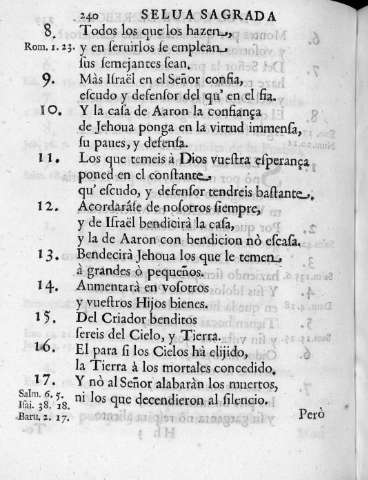 240 SELUA SAGRADA
8. Todos los que los hazen,
Rom. 1. 23. y en seruirlos se emplean
sus semejantes sean.
9. Màs Israël en el Señor confia,
escudo y defensor del qu' en el fia.
10. Y la casa de Aaron la confiança
de Jehoua ponga en la virtud immensa,
su paues, y defensa.
11. Los que temeis à Dios vuestra esperança
poned en el constante
qu' escudo, y defensor tendreis bastante.
12. Acordaráse de nosotros siempre,
y de Israël bendicirà la casa,
y la de Aaron con bendicion nò escasa.
13. Bendecirà Jehoua los que le temen
à grandes ò pequeños.
14. Aumentarà en vosotros
y vuestros Hijos bienes.
15. Del Criador benditos
sereis del Cielo, y Tierra.
16. El para si los Cielos hà elijido,
la Tierra à los mortales concedido.
17. Y nò al Señor alabaràn los muertos,
Salm. 6. 5. ni los que decendieron al silencio.
Isai. 38. 18.
Baru. 2. 17.
Però